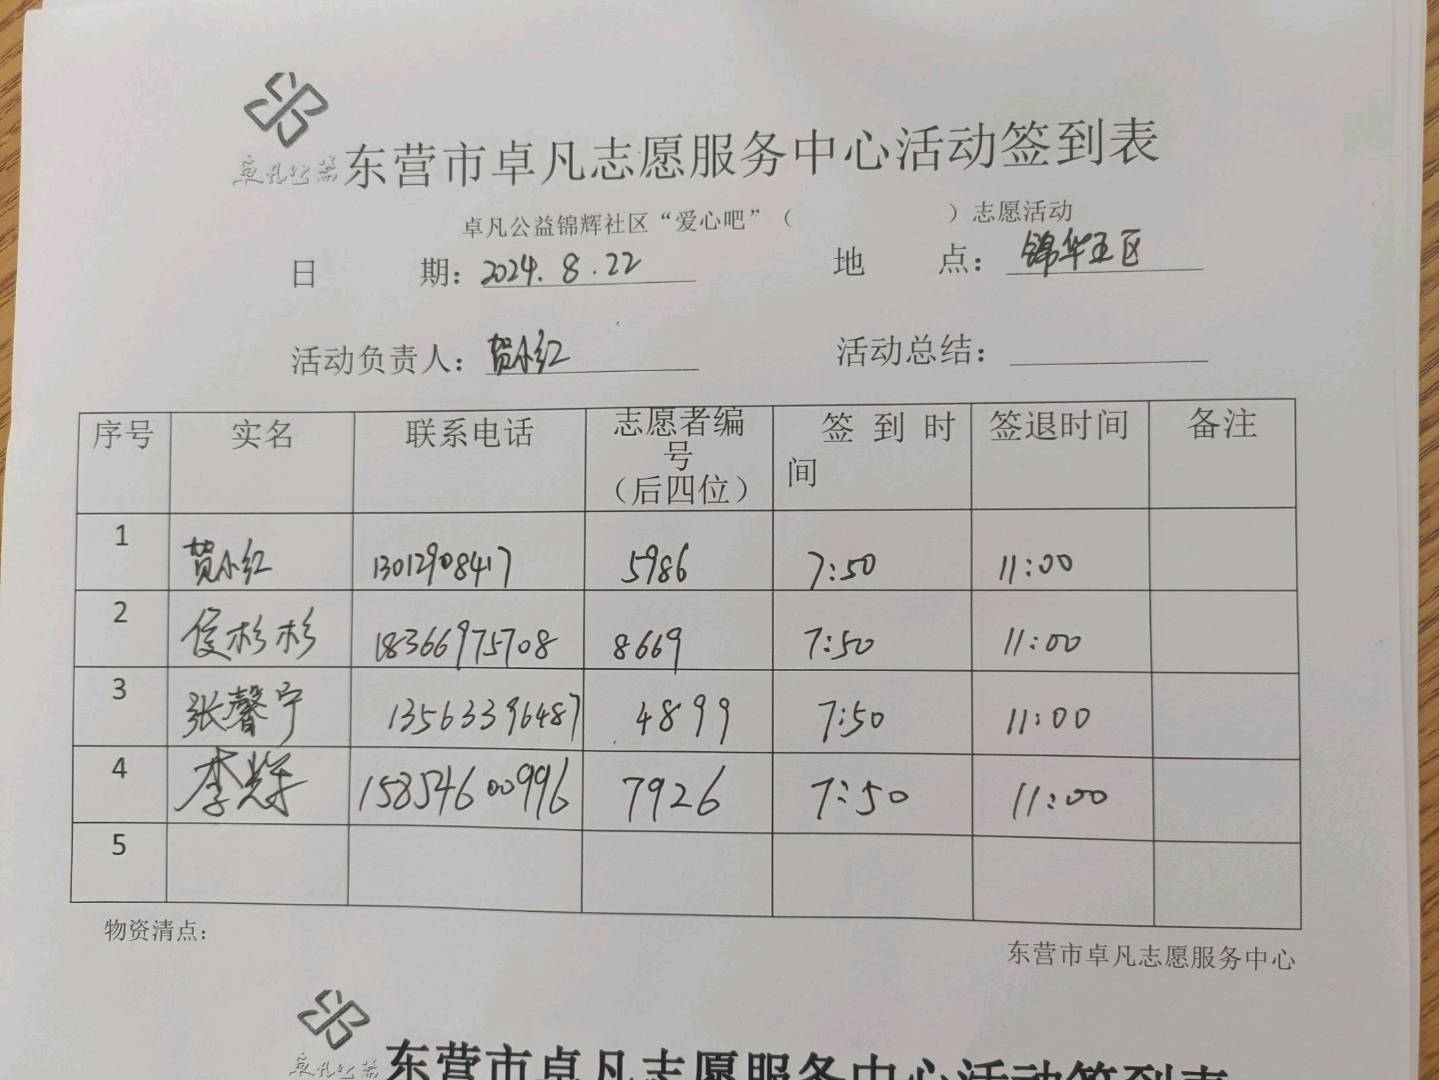 卓凡公益 东营市卓凡志愿服务中心活动签到表
卓凡公益锦辉社区“爱心吧”（ ）志愿活动
日 期：2024.8.22 地 点：锦华五区
活动负责人：贺小红 活动总结：
序号 实名 联系电话 志愿者编号（后四位） 签到时间 签退时间 备注
1 贺小红 13012908417 5986 7:50 11:00
2 侯杉杉 18366975708 8669 7:50 11:00
3 张馨宁 13563396487 4899 7:50 11:00
4 李辉 15854600996 7926 7:50 11:00
5
物资清点：
东营市卓凡志愿服务中心
卓凡公益 东营市卓凡志愿服务中心活动签到表